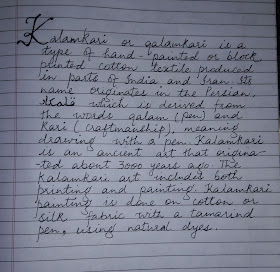 Kalamkari or qalamkari is a
type of hand-painted or block
printed cotton textile produced
in parts of India and Iran. Its
name originates in the Persian.
which is derived from
the words qalam (pen) and
Kari (craftmanship), meaning
drawing with a pen. Kalamkari
is an ancient art that origina-
-ted about 3000 years ago. The
Kalamkari art includes both
printing and painting. Kalamkari
painting is done on cotton or
silk fabric with a tamarind
pen, using natural dyes.